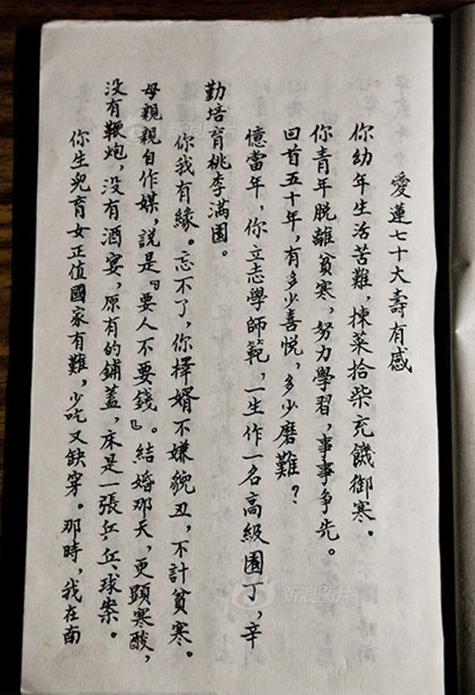 愛蓮七十大壽有感
你幼年生活苦難，揀菜拾柴充饑御寒。
你青年脱離貧寒，努力學習，事事争先。
回首五十年，有多少喜悦，多少磨難？
憶當年，你立志學師範，一生作一名高級園丁，辛
勤培育桃李满園。
你我有緣。忘不了，你擇婿不嫌貌丑，不計貧寒。
母親親自作媒，説是『要人不要錢』。結婚那天，更顯寒酸，
没有鞭炮，没有酒宴，原有的鋪蓋，床是一張乒乓球案。
你生兒育女正值國家有難，少吃又缺穿。那時，我在南
新浪图片